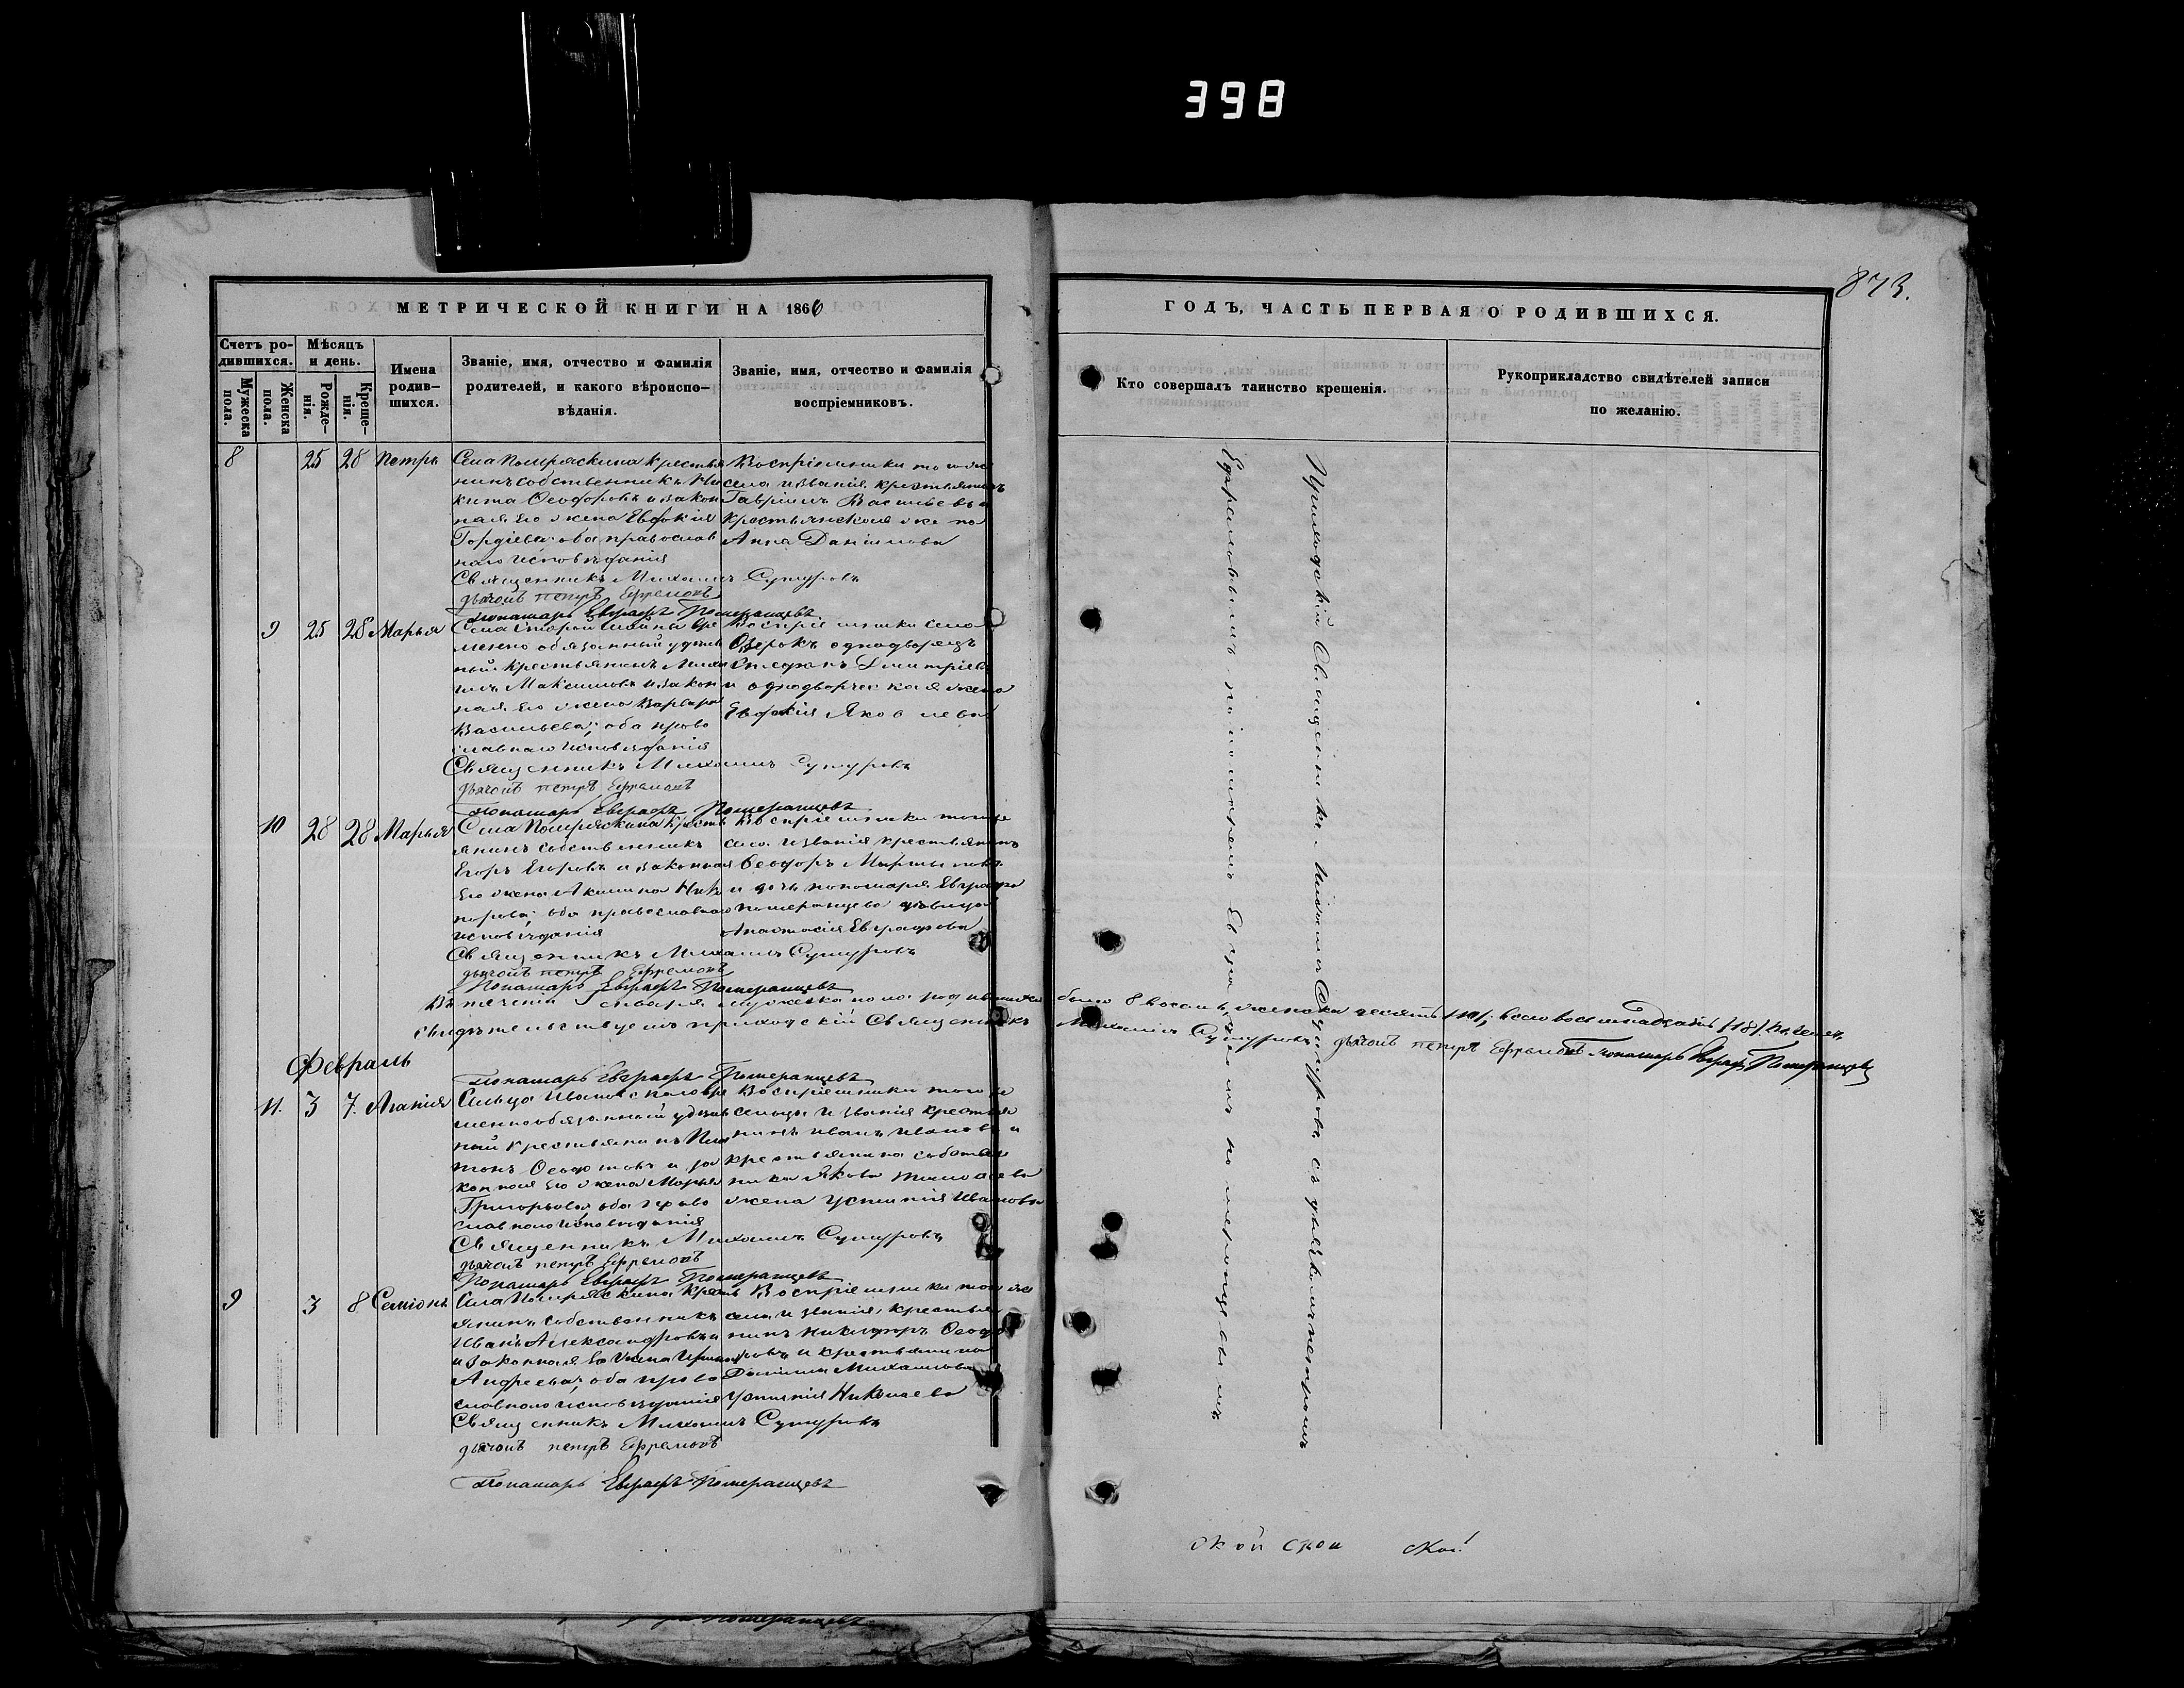 398
873.
МЕТРИЧЕСКОЙ КНИГИ НА 1866
ГОДЪ, ЧАСТЬ ПЕРВАЯ О РОДИВШИХСЯ.
Счетъ ро-
дившихся.
Мужеска
пола.
Женска
пола.
Мѣсяцъ
и день.
Рожде-
нія.
Креще-
нія.
Имена
родив-
шихся.
Званіе, имя, отчество и фамилія
родителей, и какого вѣроиспо-
вѣданія.
Званіе, имя, отчество и фамилія
воспріемниковъ.
Кто совершалъ таинство крещенія.
Рукоприкладство свидѣтелей записи
по желанію.
8 25 28 Петръ
Села Помряскина крестья
нинъ собственникъ Ни
кита Ѳеодоровъ и закон
ная его жена Евдокія
Гордіева; оба православ
наго исповѣданія
Воспріемники того же
села и званія крестьянинъ
Гавріилъ Васильевъ и
крестьянская жена
Анна Даніилова
Священникъ Михаилъ Сутуровъ
дьячокъ петръ Ефремовъ
Пономарь Евграфъ Померанцевъ
9 25 28 Марья
Села Старой Майны вре
менно обязанный удѣль
ный крестьянинъ Миха
илъ Максимовъ и закон
ная его жена Варвара
Васильева; оба право
славнаго исповѣданія
Воспріемники села
Озерокъ однодворецъ
Стефанъ Дмитріевъ
и однодворческая жена
Евдокія Яковлева
Священникъ Михаилъ Сутуровъ
дьячокъ петръ Ефремовъ
Пономарь Евграфъ Померанцевъ
10 28 28 Марья
Села Помряскина кресть
янинъ собственникъ
Егоръ Егоровъ и законная
его жена Акилина Ники
форова; оба православнаго
исповѣданія
Воспріемники того же
села и званія крестьянинъ
Ѳеодоръ Мартыновъ
и дочь пономаря Евграфа
Померанцева дѣвица
Анастасія Евграфова
Священникъ Михаилъ Сутуровъ
дьячокъ петръ Ефремовъ
Пономарь Евграфъ Померанцевъ
Въ теченіи Генваря мужеска пола родившихся было 8 восемь, женска десять /10/; всего восемнадцать /18/
Свидѣтельствуемъ приходскій Священникъ Михаилъ Сутуровъ дьячокъ петръ Ефремовъ Пономарь Евграфъ Померанцевъ
Февраль
Пономарь Евграфъ Померанцевъ
11. 3 7. Агапія
Сельца Ивановскаго вре
менно обязанный удѣль
ный крестьянинъ Пла
тонъ и за
конная его жена Марья
Григорьева; оба право
славнаго исповѣданія
Воспріемники того же
сельца и званія крестья
нинъ Иванъ Ивановъ и
крестьянина собствен
ника Якова
жена Устинія Иванова
Священникъ Михаилъ Сутуровъ
дьячокъ петръ Ефремовъ
Пономарь Евграфъ Померанцевъ
9 3 8 Семіонъ
Села Помряскина кресть
янинъ собственникъ
Иванъ Александровъ
и законная его жена Ирина
Андреева; оба право
славнаго исповѣданія
Воспріемники того же
села и званія, крестья
нинъ Никифоръ Ѳеодо
ровъ и крестьянина
Даніила Михаилова
Устинія Николаева
Священникъ Михаилъ Сутуровъ
дьячокъ петръ Ефремовъ
Пономарь Евграфъ Померанцевъ
Приходскій Священникъ Михаилъ Сутуровъ съ дьячкомъ петромъ
Ефремовымъ и пономаремъ Евграфомъ Померанцевымъ
ской ской ской